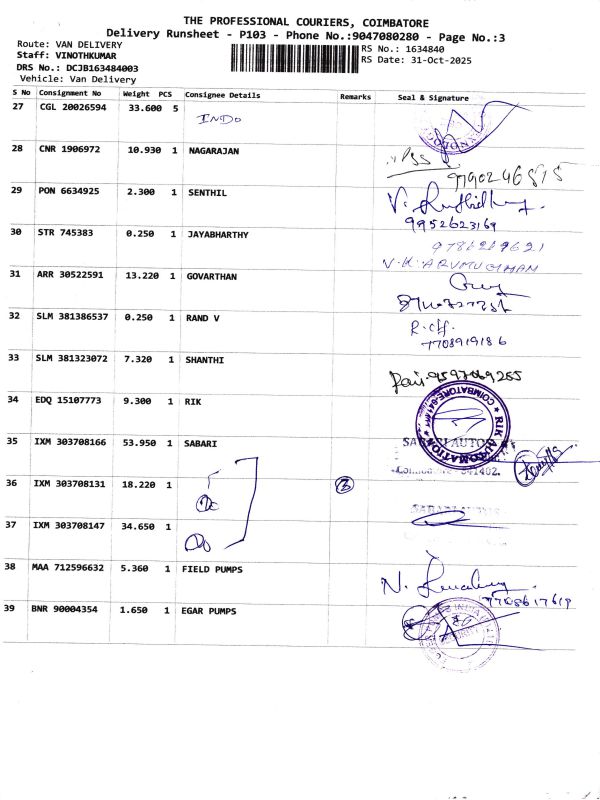 THE PROFESSIONAL COURIERS, COIMBATORE
Delivery Runsheet - P103 - Phone No.:9047080280 - Page No.:3
Route: VAN DELIVERY
Staff: VINOTHKUMAR
DRS No.: DCJB163484003
Vehicle: Van Delivery
RS No.: 1634840
RS Date: 31-Oct-2025
S No Consignment No Weight PCS Consignee Details Remarks Seal & Signature
27 CGL 20026594 33.600 5 INDO
28 CNR 1906972 10.930 1 NAGARAJAN
7790246815
29 PON 6634925 2.300 1 SENTHIL
9952623169
30 STR 745383 0.250 1 JAYABHARTHY
9786269621
V.K. ARUMUGHAM
31 ARR 30522591 13.220 1 GOVARTHAN
32 SLM 381386537 0.250 1 RAND V
7708919186
33 SLM 381323072 7.320 1 SHANTHI
9597069285
34 EDQ 15107773 9.300 1 RIK
RIK AUTOMATION
COIMBATORE
35 IXM 303708166 53.950 1 SABARI
36 IXM 303708131 18.220 1
37 IXM 303708147 34.650 1
38 MAA 712596632 5.360 1 FIELD PUMPS
7708617619
39 BNR 90004354 1.650 1 EGAR PUMPS